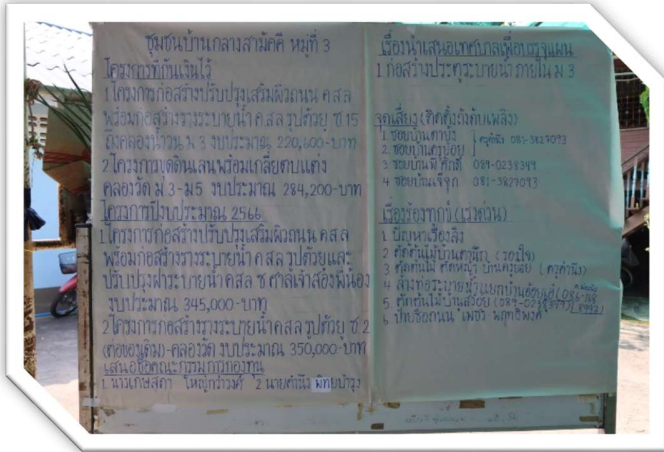 ชุมชนบ้านกลางสามัคคี หมู่ที่ 3
โครงการที่กันเงินไว้
1.โครงการก่อสร้างปรับปรุงเสริมผิวถนน คสล
พร้อมก่อสร้างรางระบายน้ำ คสล รูปตัวยู ซ 15
ถึงคลองน้ำวน ม 3 งบประมาณ 220,600-บาท
2.โครงการขุดดินเลนพร้อมเกลี่ยตบแต่ง
คลองวัด ม 3-ม5 งบประมาณ 284,200-บาท
โครงการปีงบประมาณ 2566
1.โครงการก่อสร้างปรับปรุงเสริมผิวถนน คสล
พร้อมก่อสร้างรางระบายน้ำ คสล รูปตัวยูและ
ปรับปรุงฝาระบายน้ำ คสล ซ ศาลเจ้าสองพี่น้อง
งบประมาณ 345,000-บาท
2.โครงการก่อสร้างรางระบายน้ำ คสล รูปตัวยู ซ 2
(ต่อของเดิม)-คลองวัด งบประมาณ 350,000-บาท
เสนอชื่อคณะกรรมการกองทุน
1. 2 นายคำนึง พิทยบำรุง
เรื่องนำเสนอเทศบาลเพื่อบรรจุแผน
1 ก่อสร้างประตูระบายน้ำ ภายใน ม 3
จุดเสี่ยง (ติดตั้งถังดับเพลิง)
1. ซอยบ้านตาปุ๋ง
2. ซอยบ้านครูน้อย ครูคำนึง 081-3827093
3 ซอยบ้านพี่ศักดิ์ 089-0238399
4 ซอยบ้านเจ๊จุก 081-3827093
เรื่องร้องทุกข์ (เร่งด่วน)
1 ปัญหาเรื่องลิง
2 ตัดต้นไม้บ้าน
3 ตัดต้นไม้ ตัดหญ้า บ้านครูน้อย (ครูคำนึง)
4 ล้างท่อระบายน้ำแยกบ้าน
5 ตัดต้นไม้บ้าน
6 ป้ายชื่อถนน เพชร-พฤทธิพงศ์